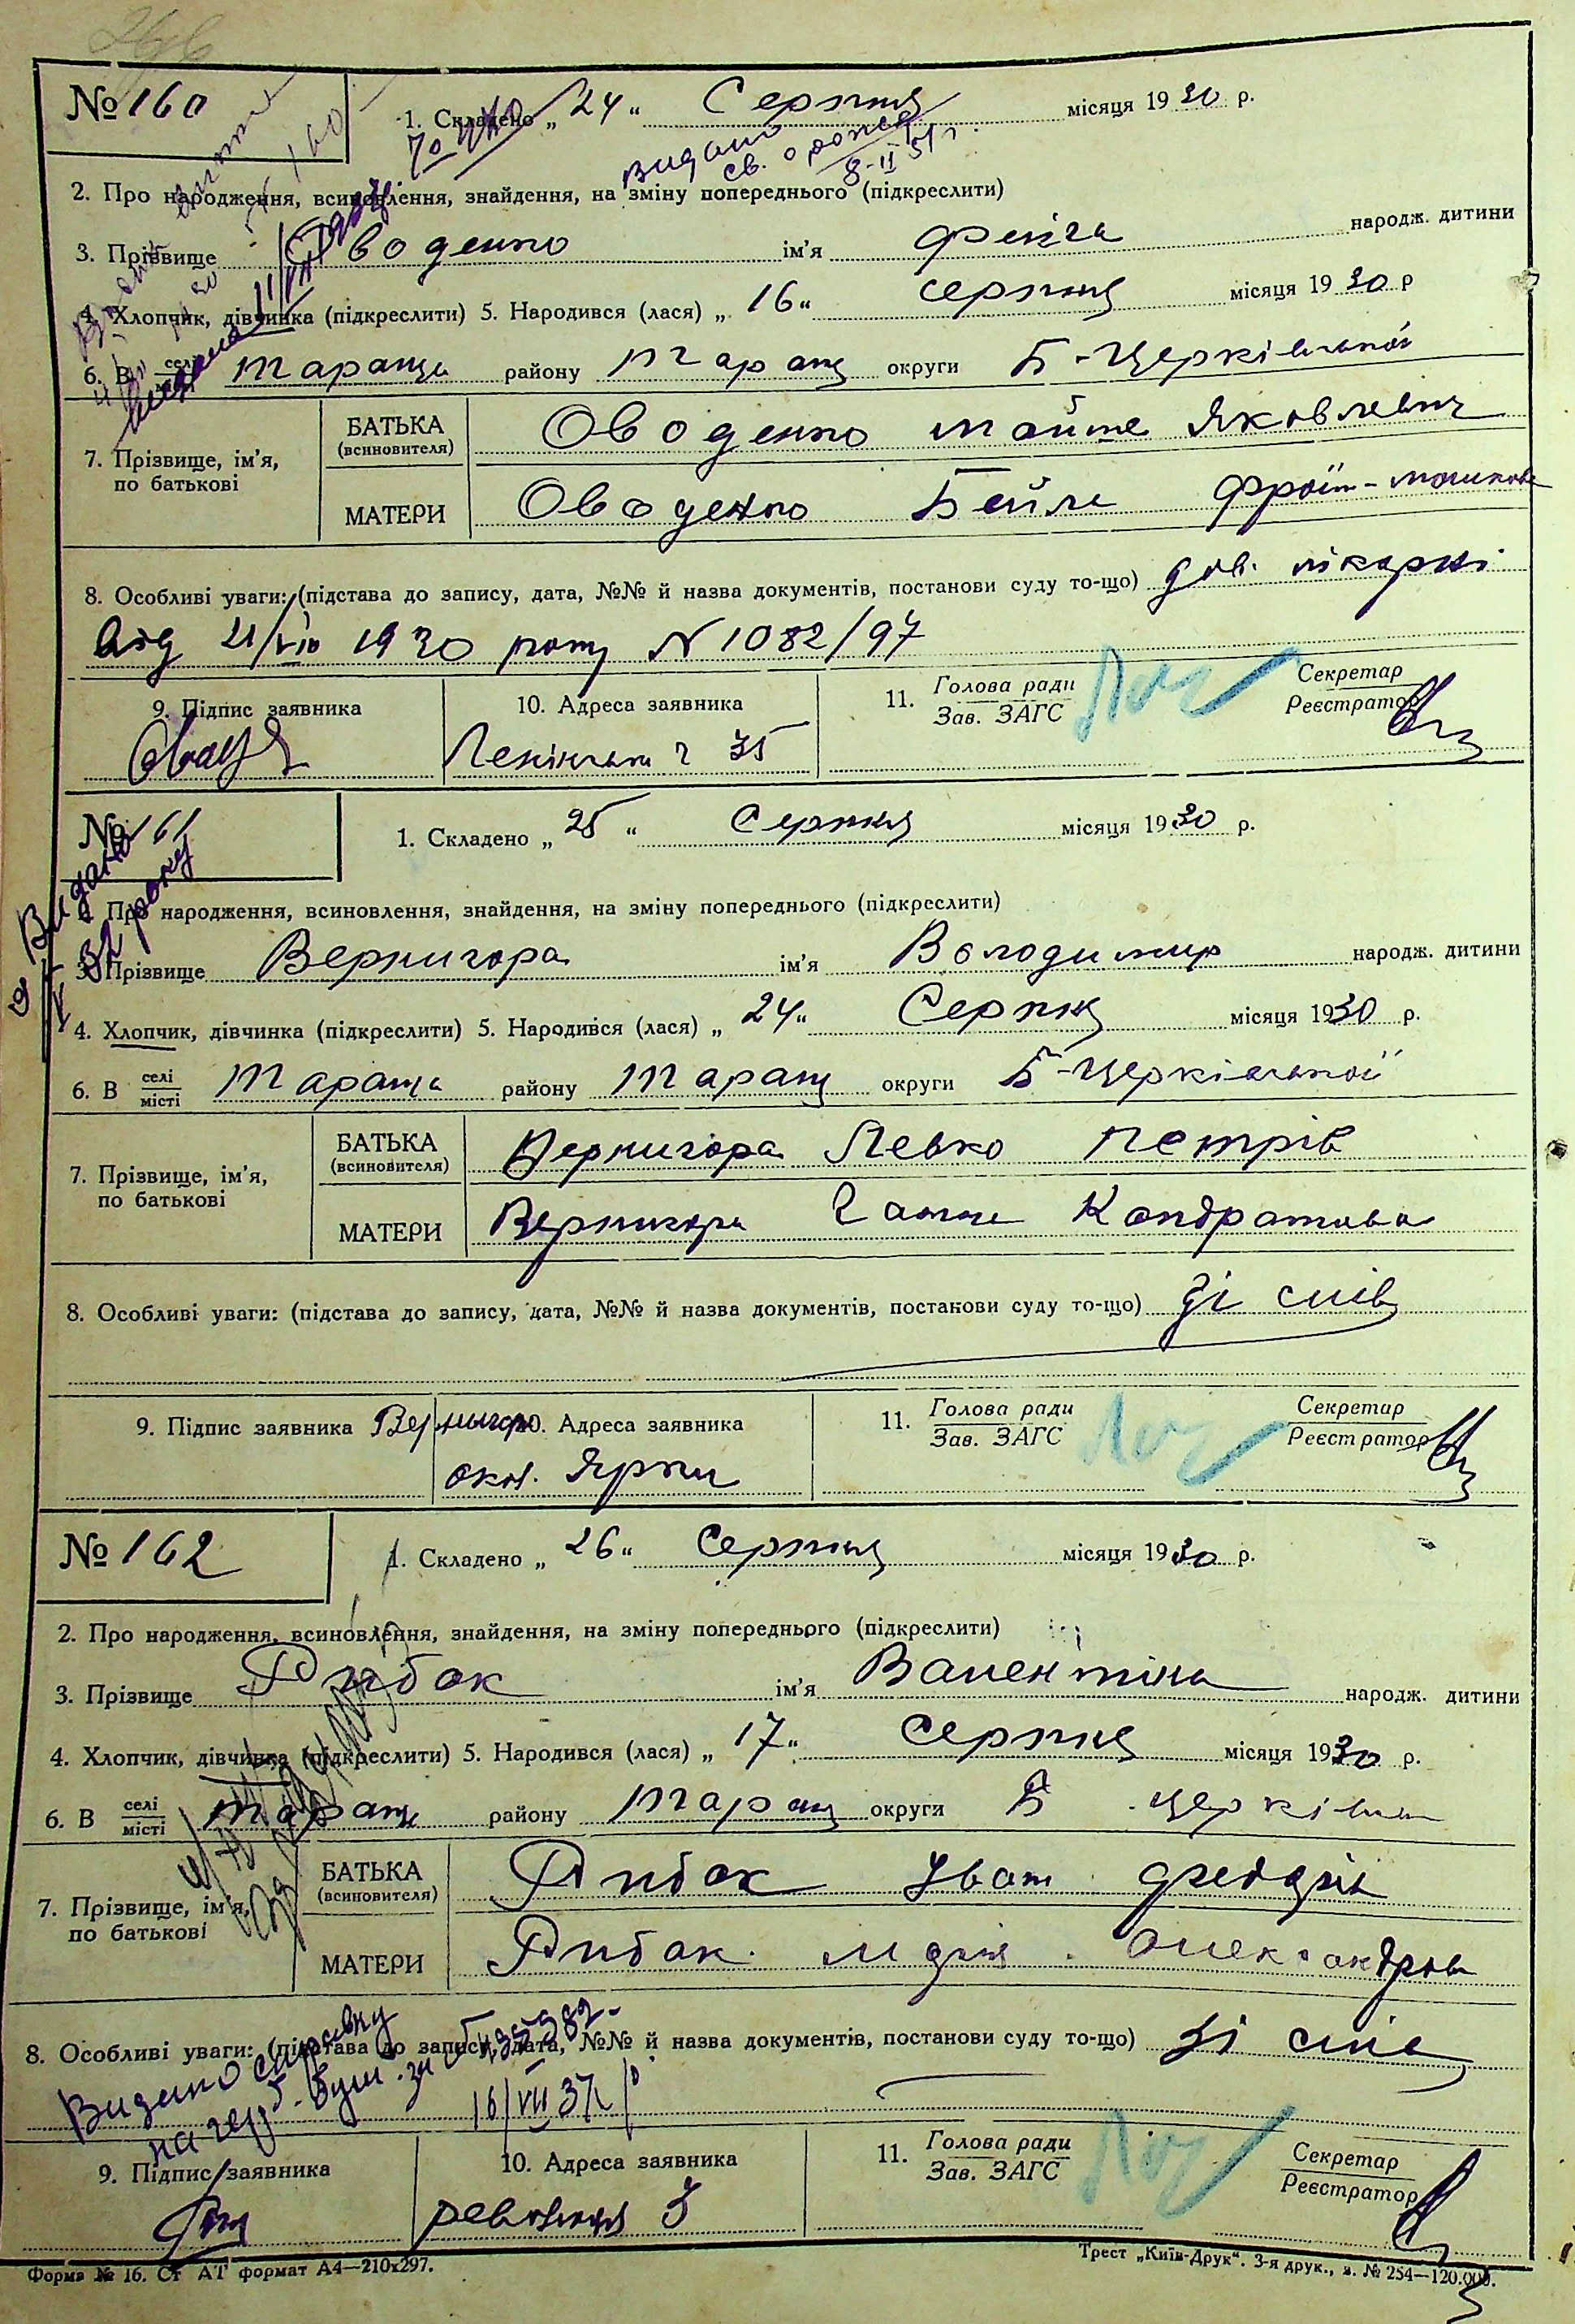 № 160
1. Складено „ 24 “ Серпня місяця 1930 р.
Видано
св. о рожд
8-II 51 г.
2. Про народження, всиновлення, знайдення, на зміну попереднього (підкреслити)
3. Прізвище Оводенко ім'я народж. дитини
4. Хлопчик, дівчинка (підкреслити) 5. Народився (лася) „ 16 “ серпня місяця 1930 р
6. В селі/місті Тараща району Таращ округи Б-Церківської
7. Прізвище, ім'я, по батькові
БАТЬКА (всиновителя) Оводенко Мойше Яковлевич
МАТЕРИ Оводенко Бейля Фроїм-Мошкова
8. Особливі уваги: (підстава до запису, дата, №№ й назва документів, постанови суду то-що) дов. лікарні
від 21/VIII 1930 року N 1082/97
9. Підпис заявника
10. Адреса заявника
11. Голова ради
Зав. ЗАГС
Секретар
Реєстратор
№ 161
Видано
1. Складено „ 25 “ Серпня місяця 1930 р.
2. Про народження, всиновлення, знайдення, на зміну попереднього (підкреслити)
3. Прізвище Вернигора ім'я Володимир народж. дитини
4. Хлопчик, дівчинка (підкреслити) 5. Народився (лася) „ 24 “ Серпня місяця 1930 р.
6. В селі/місті Тараща району Таращ округи Б-Церківської
7. Прізвище, ім'я, по батькові
БАТЬКА (всиновителя) Вернигора Левко Петрів
МАТЕРИ Вернигора Ганна Кондратова
8. Особливі уваги: (підстава до запису, дата, №№ й назва документів, постанови суду то-що) Зі слів
9. Підпис заявника Вернигора
10. Адреса заявника
окол. Ярки
11. Голова ради
Зав. ЗАГС
Секретар
Реєстратор
№ 162
1. Складено „ 26 “ Серпня місяця 1930 р.
2. Про народження, всиновлення, знайдення, на зміну попереднього (підкреслити)
3. Прізвище Рибак ім'я Валентина народж. дитини
4. Хлопчик, дівчинка (підкреслити) 5. Народився (лася) „ 17 “ Серпня місяця 1930 р.
6. В селі/місті Таращі району Таращ округи Б Церківськ
7. Прізвище, ім'я, по батькові
БАТЬКА (всиновителя) Рибак Іван
МАТЕРИ Рибак Лідія Олександров
8. Особливі уваги: (підстава до запису, дата, №№ й назва документів, постанови суду то-що) Зі слів
Видано справку
16/VII 37 р
9. Підпис заявника
10. Адреса заявника
11. Голова ради
Зав. ЗАГС
Секретар
Реєстратор
Форма № 16. Ст АТ формат А4—210х297.
Трест „Київ-Друк“. 3-я друк., з. № 254—120.000.